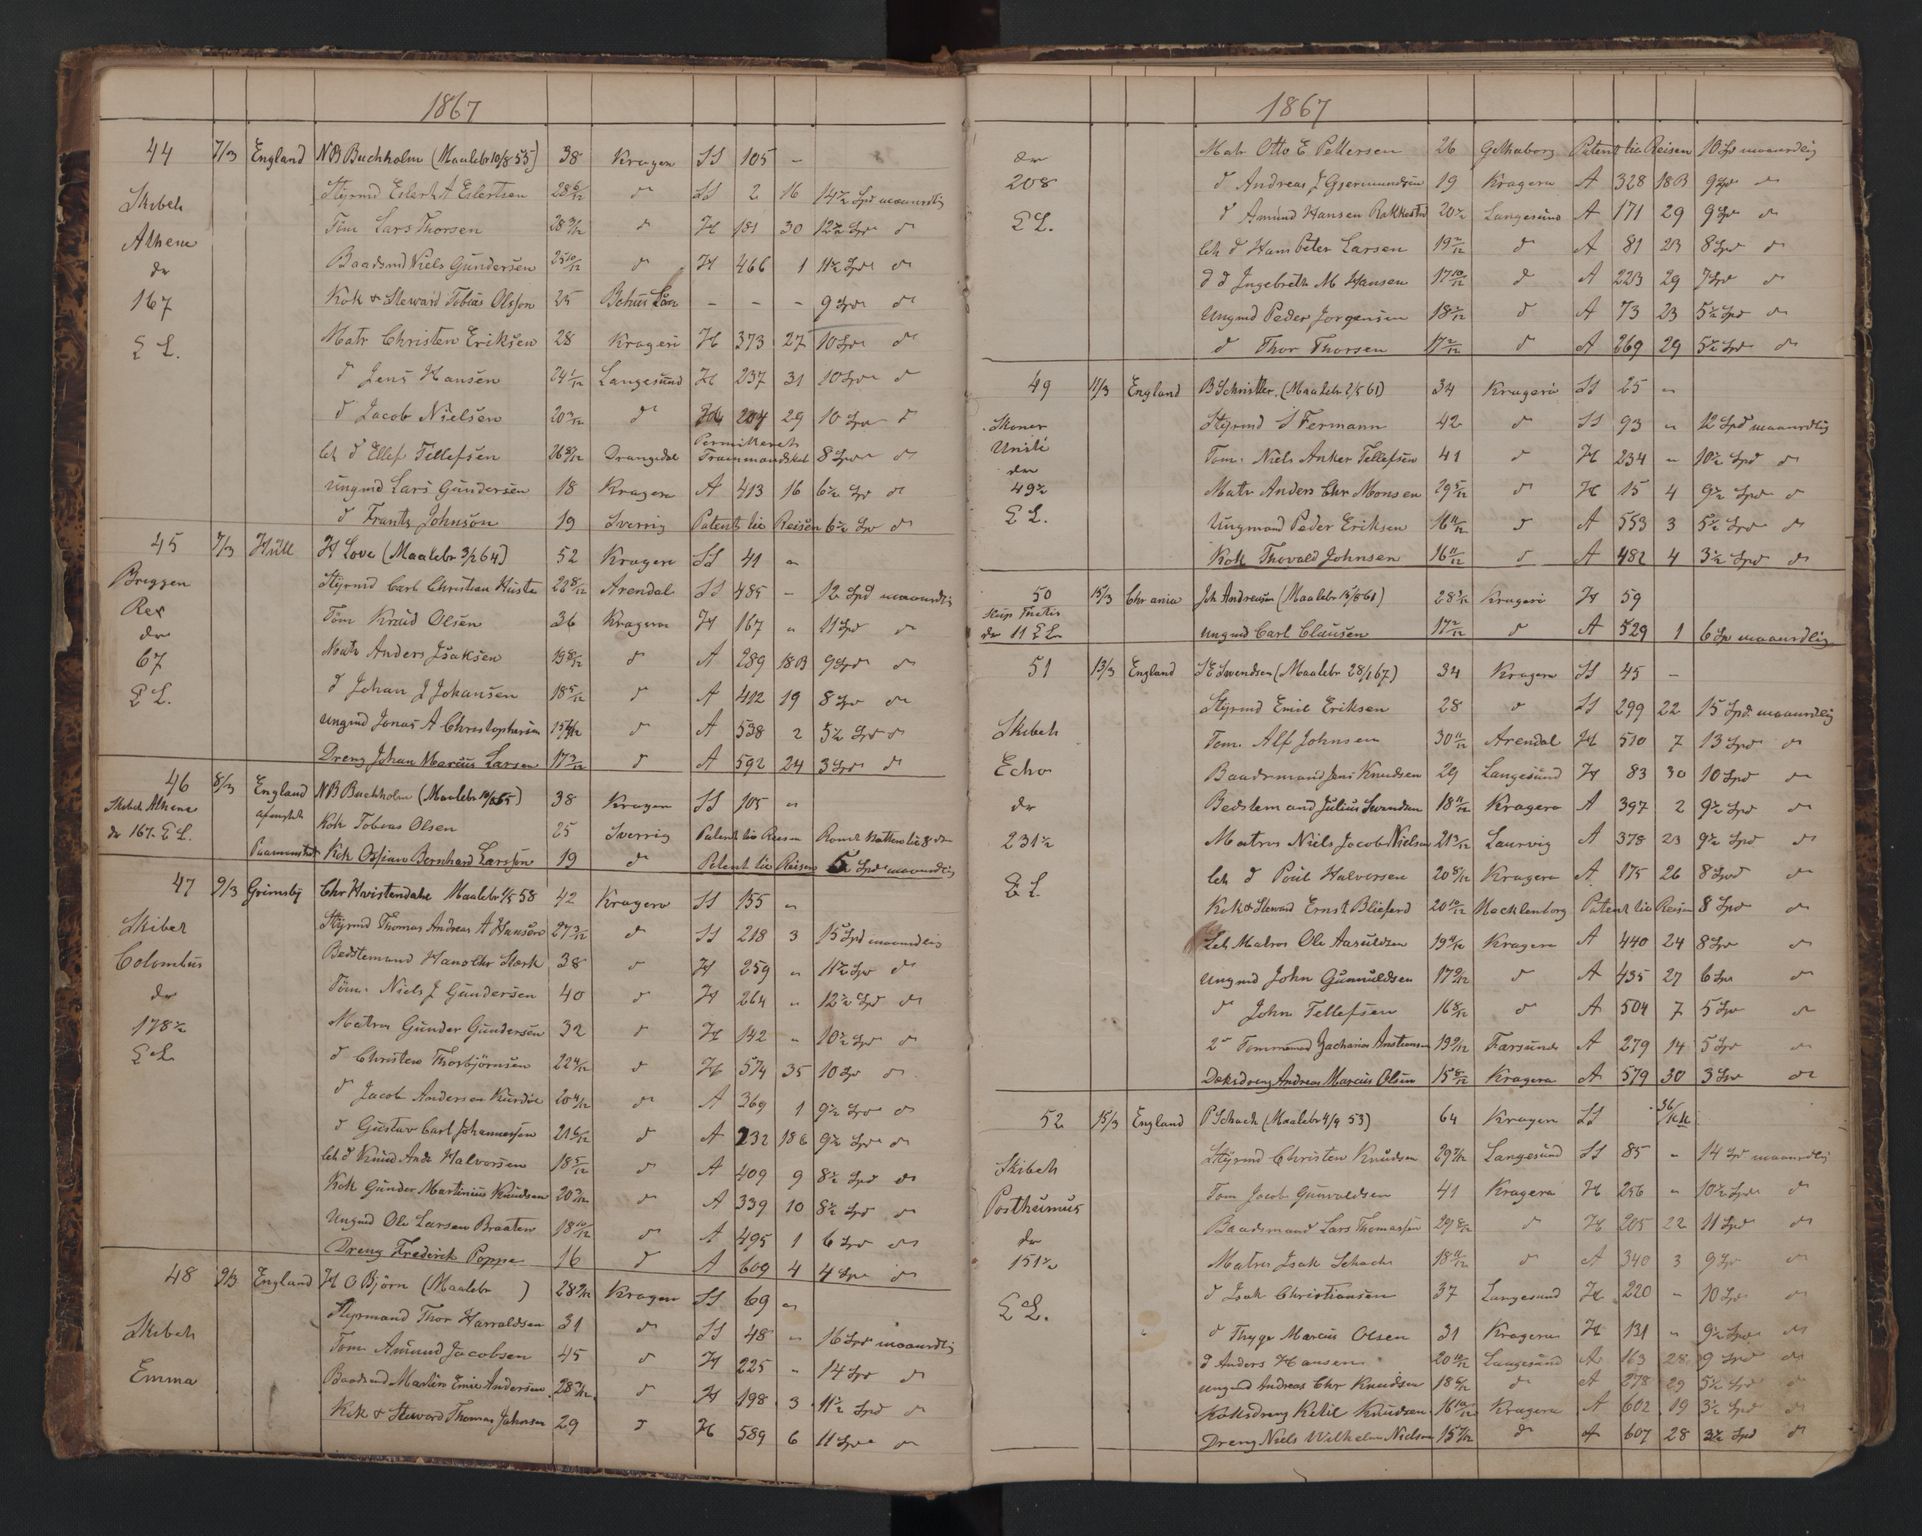 1867
44 7/3 England NB Buchholm (Maalebr 10/8 55) 38 Kragerø SS 105 -
Skibet Styrmd Eilert A Eilertsen 28 6/12 d SS 2 16 14½ Spd maanedlig
Tøm Lars Thorsen 28 3/12 d H 181 30 12½ Spd d
Athene Baadsmd Niels Gundersen 25 10/12 d H 466 1 11½ Spd d
dr
167 Kok & Steward Tobias Olsson 25 - - - 9 Spd d
E L. Matr Christen Eriksen 28 Kragerö H 373 27 10 Spd d
d Jens Hansen 24 1/12 Langesund H 237 31 10 Spd d
d Jacob Nielsen 20 3/12 d 204 29 10 Spd d
Let d Ellef Tellefsen 26 Drangedal 8 Spd d
Ungmd Lars Gundersen 18 Kragerø A 413 16 6½ Spd d
d Frantz Johnson 19 Sverrig Patent til Reisen 6½ Spd d
45 7/3 Hull H Love (Maalebr 3/2 64) 52 Kragerø SS 41 "
Brеggen Styrmd Carl Christian 22 8/12 Arendal SS 485 - 12 Spd maanedlig
Rex Töm Knud Olsen 36 Kragerø H 167 " 11 Spd d
dr
67 Matr Anders Isaksen 19 8/12 d A 289 18B 9 Spd d
E L. d Johan J Johansen 18 5/12 d A 412 19 8 Spd d
Ungmd Jonas A Christophersen 15 d A 538 2 5½ Spd d
Dreng Johan Marcus Larsen 17 3/12 d A 592 24 3 Spd d
46 8/3 England NB Buchholm (Maalebr 38 Kragerø SS 105 "
Skibet Athene afmynstret Kok Tobias Olsen 25 Sverrig Patent til Reisen
dr 167. E L. Paamynstret Kok Ossian Bernhard Larsson 19 d Patent til Reisen Spd maanedlig
47 9/3 Grimsby Chr Hvistendahl Maalebr 58 42 Kragerø SS 155 "
Skibet Styrmd Thomas Andreas A Hansen 27 3/12 d SS 218 3 15 Spd maanedlig
Colombus Bedstemand Hans Chr Stærk 38 d H 259 " 11½ Spd d
dr Töm Niels J Gundersen 40 d H 264 " 12½ Spd d
178½ Matros Gunder Gundersen 32 d H 142 " 10½ Spd d
E L d Christen Thorbjørnsen 22 4/12 d H 574 35 10 Spd d
d Jacob Andersen 20 4/12 d A 369 1 9½ Spd d
d Gustav Carl Johannessen 21 6/12 d A 232 186 9½ Spd d
Let d Knud And. Halvorsen 18 5/12 d A 409 9 8½ Spd d
Kok Gunder Martinius Knudsen 20 d A 339 10 8½ Spd d
Ungmd Ole Larsen Braaten 18 10/12 d A 495 1 6 Spd d
Dreng Frederik Poppe 16 d A 609 4 4 Spd d
48 9/3 England H O Bjørn (Maalebr ) 28 Kragerø SS 69 "
Skibet Styrmand Thor Harraldsen 31 d SS 48 " 16 Spd maanedlig
Tøm Amund Jacobsen 45 d H 225 " 14 Spd d
Emma Baadsmd Martin Emil Andersen 28 d H 198 3 11½ Spd d
Kok & Steward Thomas Johnsen 29 d H 589 6 11 Spd d
1867
dr Matr Otto E Pettersen 26 Gothaborg Patent til Reisen 10 Spd maanedlig
208 d Andreas J Gjermundsen 19 Kragerø A 328 18B 9 Spd d
E L. d Amund Hansen Rakkestad 20 Langesund A 171 29 9 Spd d
Let d Hans Peter Larsen 19 2/12 d A 81 23 8 Spd d
d d Ingebreth M Hansen 17 10/12 d A 223 29 7 Spd d
Ungmd Peder Jorgensen 18 d A 73 23 5½ Spd d
d Thor Thorsen 17 2/12 d A 269 29 5½ Spd d
49 11/3 England B Schrøtter. (Maalebr 61) 34 Kragerö SS 25 "
Skoner Styrmd S Fermann 42 d SS 93 " 12 Spd maanedlig
Tøm. Niels Anker Tellefsen 41 d H 234 " 10½ Spd d
dr
49½ Matr Anders Chr Monsen 29 5/12 d H 15 4 9½ Spd d
E L. Ungmand Peder Eriksen 16 11/12 d A 553 3 5½ Spd d
Kok Thovald Johnsen 16 11/12 d A 482 4 3½ Spd d
50 15/3 Chrania Joh Andreasen (Maalebr 28 3/12 Kragerö H 59
Skip Thetis
dr 11 E L. Ungmd Carl Clausen 17 2/12 d A 529 1 6 Spd maanedlig
51 13/3 England Swendsen (Maalebr 28/1 67) 34 Kragerø SS 45 -
Styrmd Emil Eriksen 28 d SS 299 22 15 Spd. maanedlig
Skibet Tøm. Alf Johnsen 30 11/12 Arendal H 510 7 13 Spd d
Echo Baadsmand Jens Knudsen 29 Langesund H 83 30 10 Spd d
dr Bedstemand Julius Swendsen 18 11/12 Kragerø A 397 2 9½ Spd d
231½ Matros Niels Jacob Nielsen 21 3/12 Laurvig A 378 23 9½ Spd d
E L. Let d Poul Halvorsen 20 8/12 Kragerø A 175 26 8 Spd d
Kok & Steward Ernst Bliefferd 20 10/12 Mecklenborg Patent til Reisen 8 Spd d
Let Matros Ole Aasuldsen 19 Kragerø A 440 24 8 Spd d
Ungmd John Gunnuldsen 17 d A 435 27 6 Spd d
d John Tellefsen 16 8/12 d A 504 7 5 Spd d
2d Tømmermand Zacharias 19 Farsund A 279 14 5 Spd d
Dæksdreng Andreas Marcus Olsen 15 8/12 Kragerø A 579 30 3 Spd d
52 15/3 England P Schack (Maalebr 4/9 53) 64 Kragerø SS
Skibet Styrmd Christen Knudsen 29 Langesund SS 85 - 14 Spd maanedlig
Posthumus Tøm Jacob Gunvaldsen 41 Kragerø H 256 " 10½ Spd d
dr Baadsmand Lars Thomassen 29 8/12 d H 205 22 11 Spd d
151½ Matros Isak Schack 18 11/12 d A 340 3 9 Spd d
E L. d Isak Christiansen 37 Langesund H 220 - 10 Spd d
d Thyge Marcus Olsen 31 Kragerø H 131 " 9½ Spd d
d Anders Hansen 20 10/12 Langesund A 163 28 9 Spd d
Ungmd Andreas Chr Knudsen 18 d A 278 29 5½ Spd d
Koksdreng Ketil Knudsen 16 10/12 Kragerø A 602 19 3½ Spd d
Dreng Niels Wilhelm Nielsen 15 d A 607 28 3½ Spd d